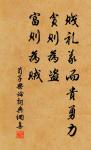 賤禮義而貴勇力
貧則為盜
富則為賊
荀子樂論詞典網集